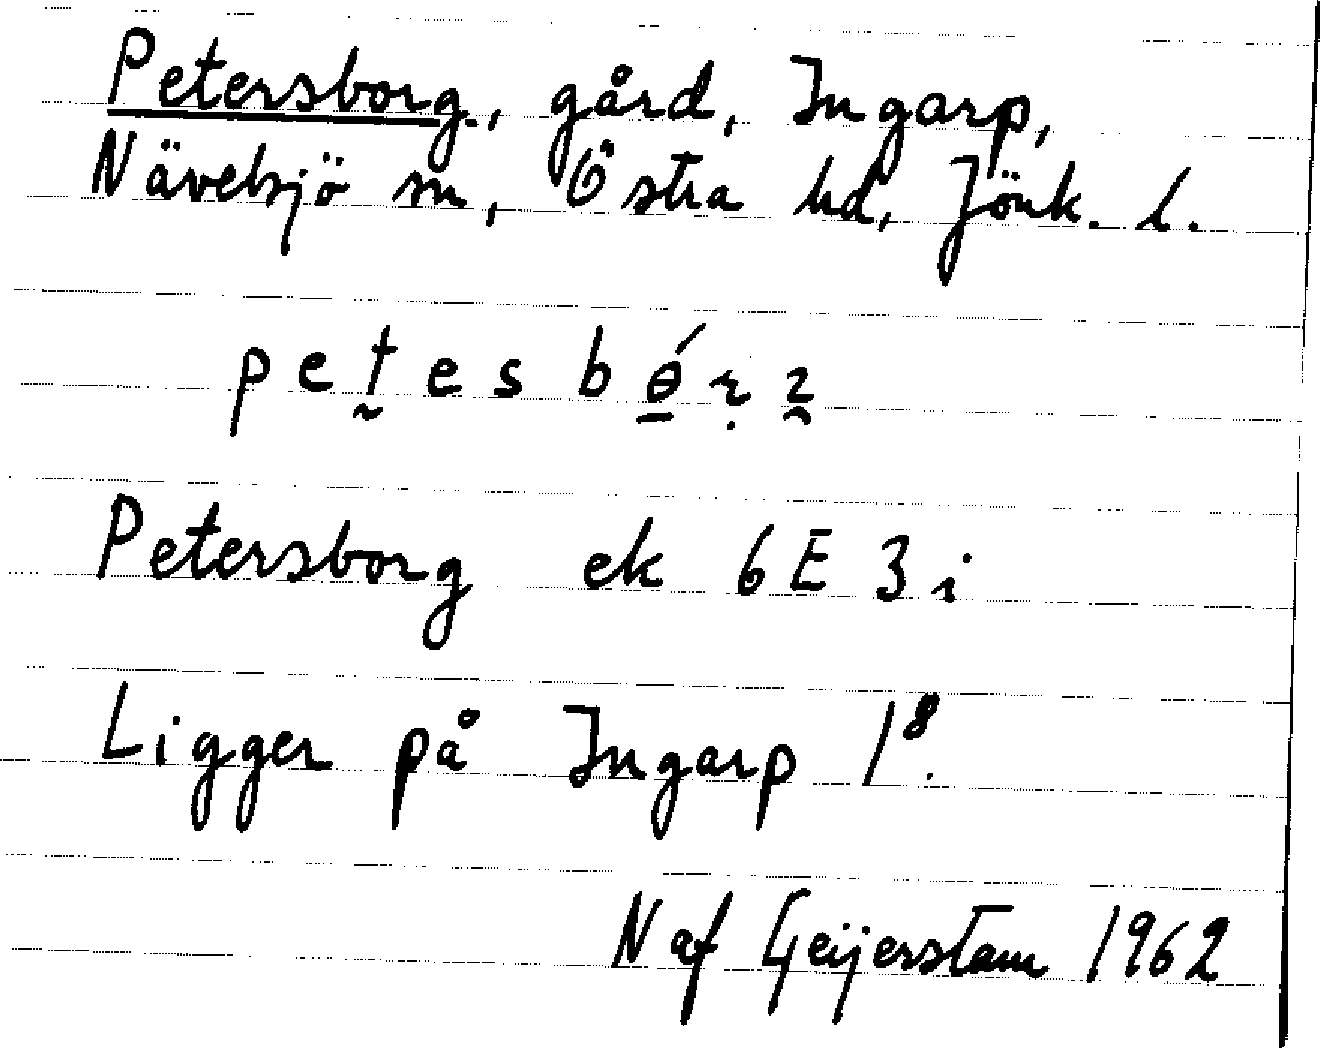 Petersborg, gård, Ingarp,
Nävelsjö sn, Östra hd, Jönk. l.
Petersborg ek 6E 3i
Ligger på Ingarp 1⁸.
N af Geijerstam 1962